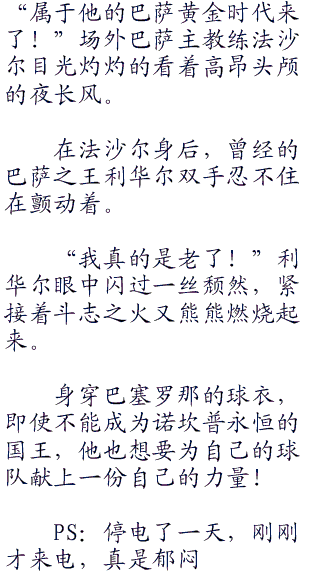 “属于他的巴萨黄金时代来
了！”场外巴萨主教练法沙
尔目光灼灼的看着高昂头颅
的夜长风。
在法沙尔身后，曾经的
巴萨之王利华尔双手忍不住
在颤动着。
“我真的是老了！”利
华尔眼中闪过一丝颓然，紧
接着斗志之火又熊熊燃烧起
来。
身穿巴塞罗那的球衣，
即使不能成为诺坎普永恒的
国王，他也想要为自己的球
队献上一份自己的力量！
PS：停电了一天，刚刚
才来电，真是郁闷